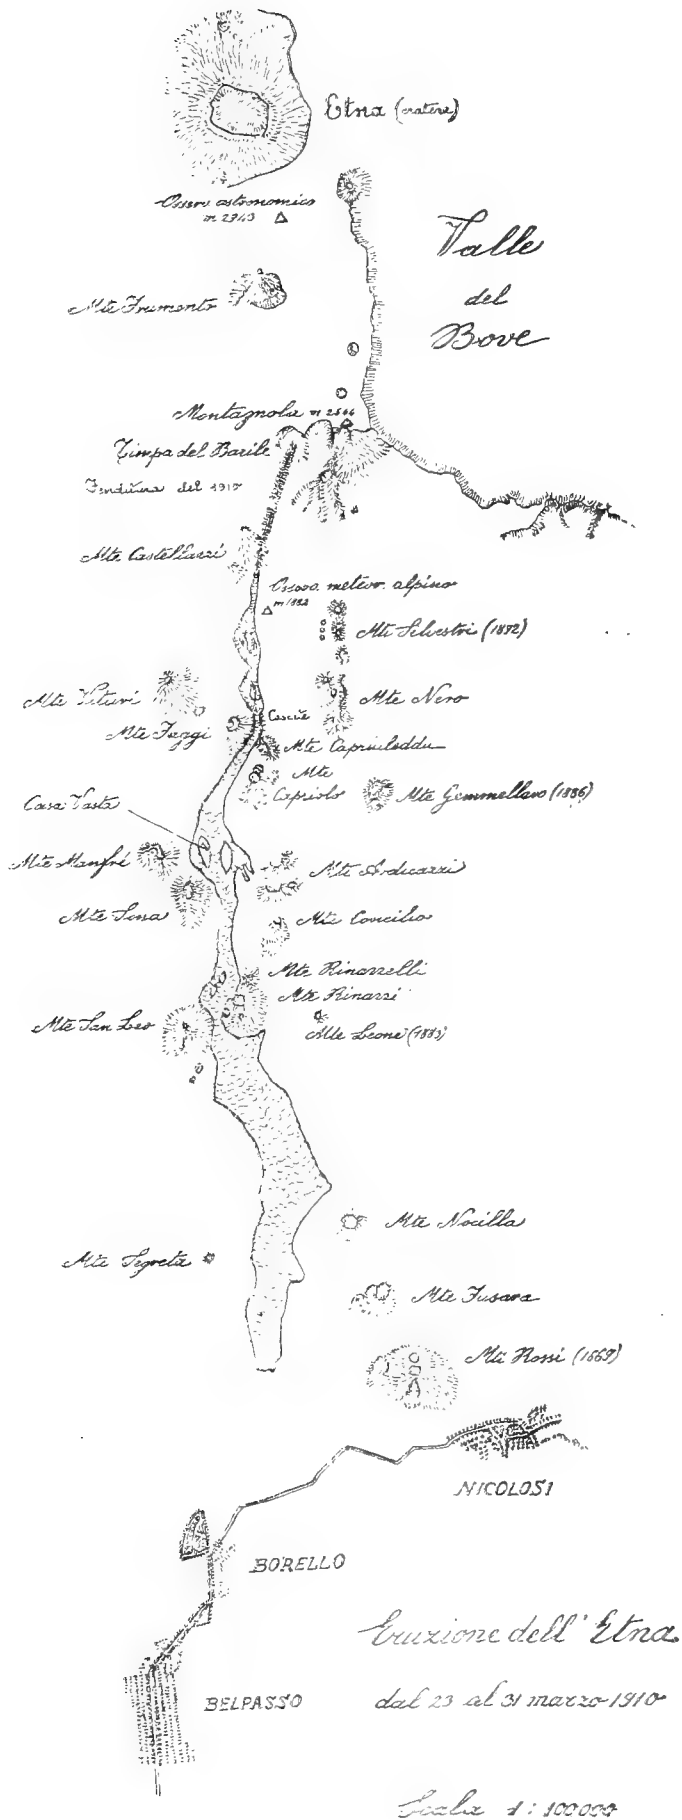 Etna (cratere)
Osserv. astronomico
m 2943
Valle
del
Bove
Mte Frumento
Montagnola m 2544
Timpa del Barile
Fenditura del 1910
Mte Castellazzi
Osserv. meteor. alpino
m 1882
Mti Silvestri (1892)
Mte Vituri
Mte Nero
Mte Faggi
Mte Capriuleddu
Mte
Capriolo
Mte Gemmellaro (1886)
Casa Vasta
Mte Manfré
Mte Ardicazzi
Mte Sona
Mte Concilio
Mte Rinazzelli
Mte Rinazzi
Mte San Leo
Mte Leone (1883)
Mte Nocilla
Mte Segreta
Mte Fusara
Mti Rossi (1669)
NICOLOSI
BORELLO
Eruzione dell' Etna
BELPASSO
dal 23 al 31 marzo 1910
Scala 1:100000